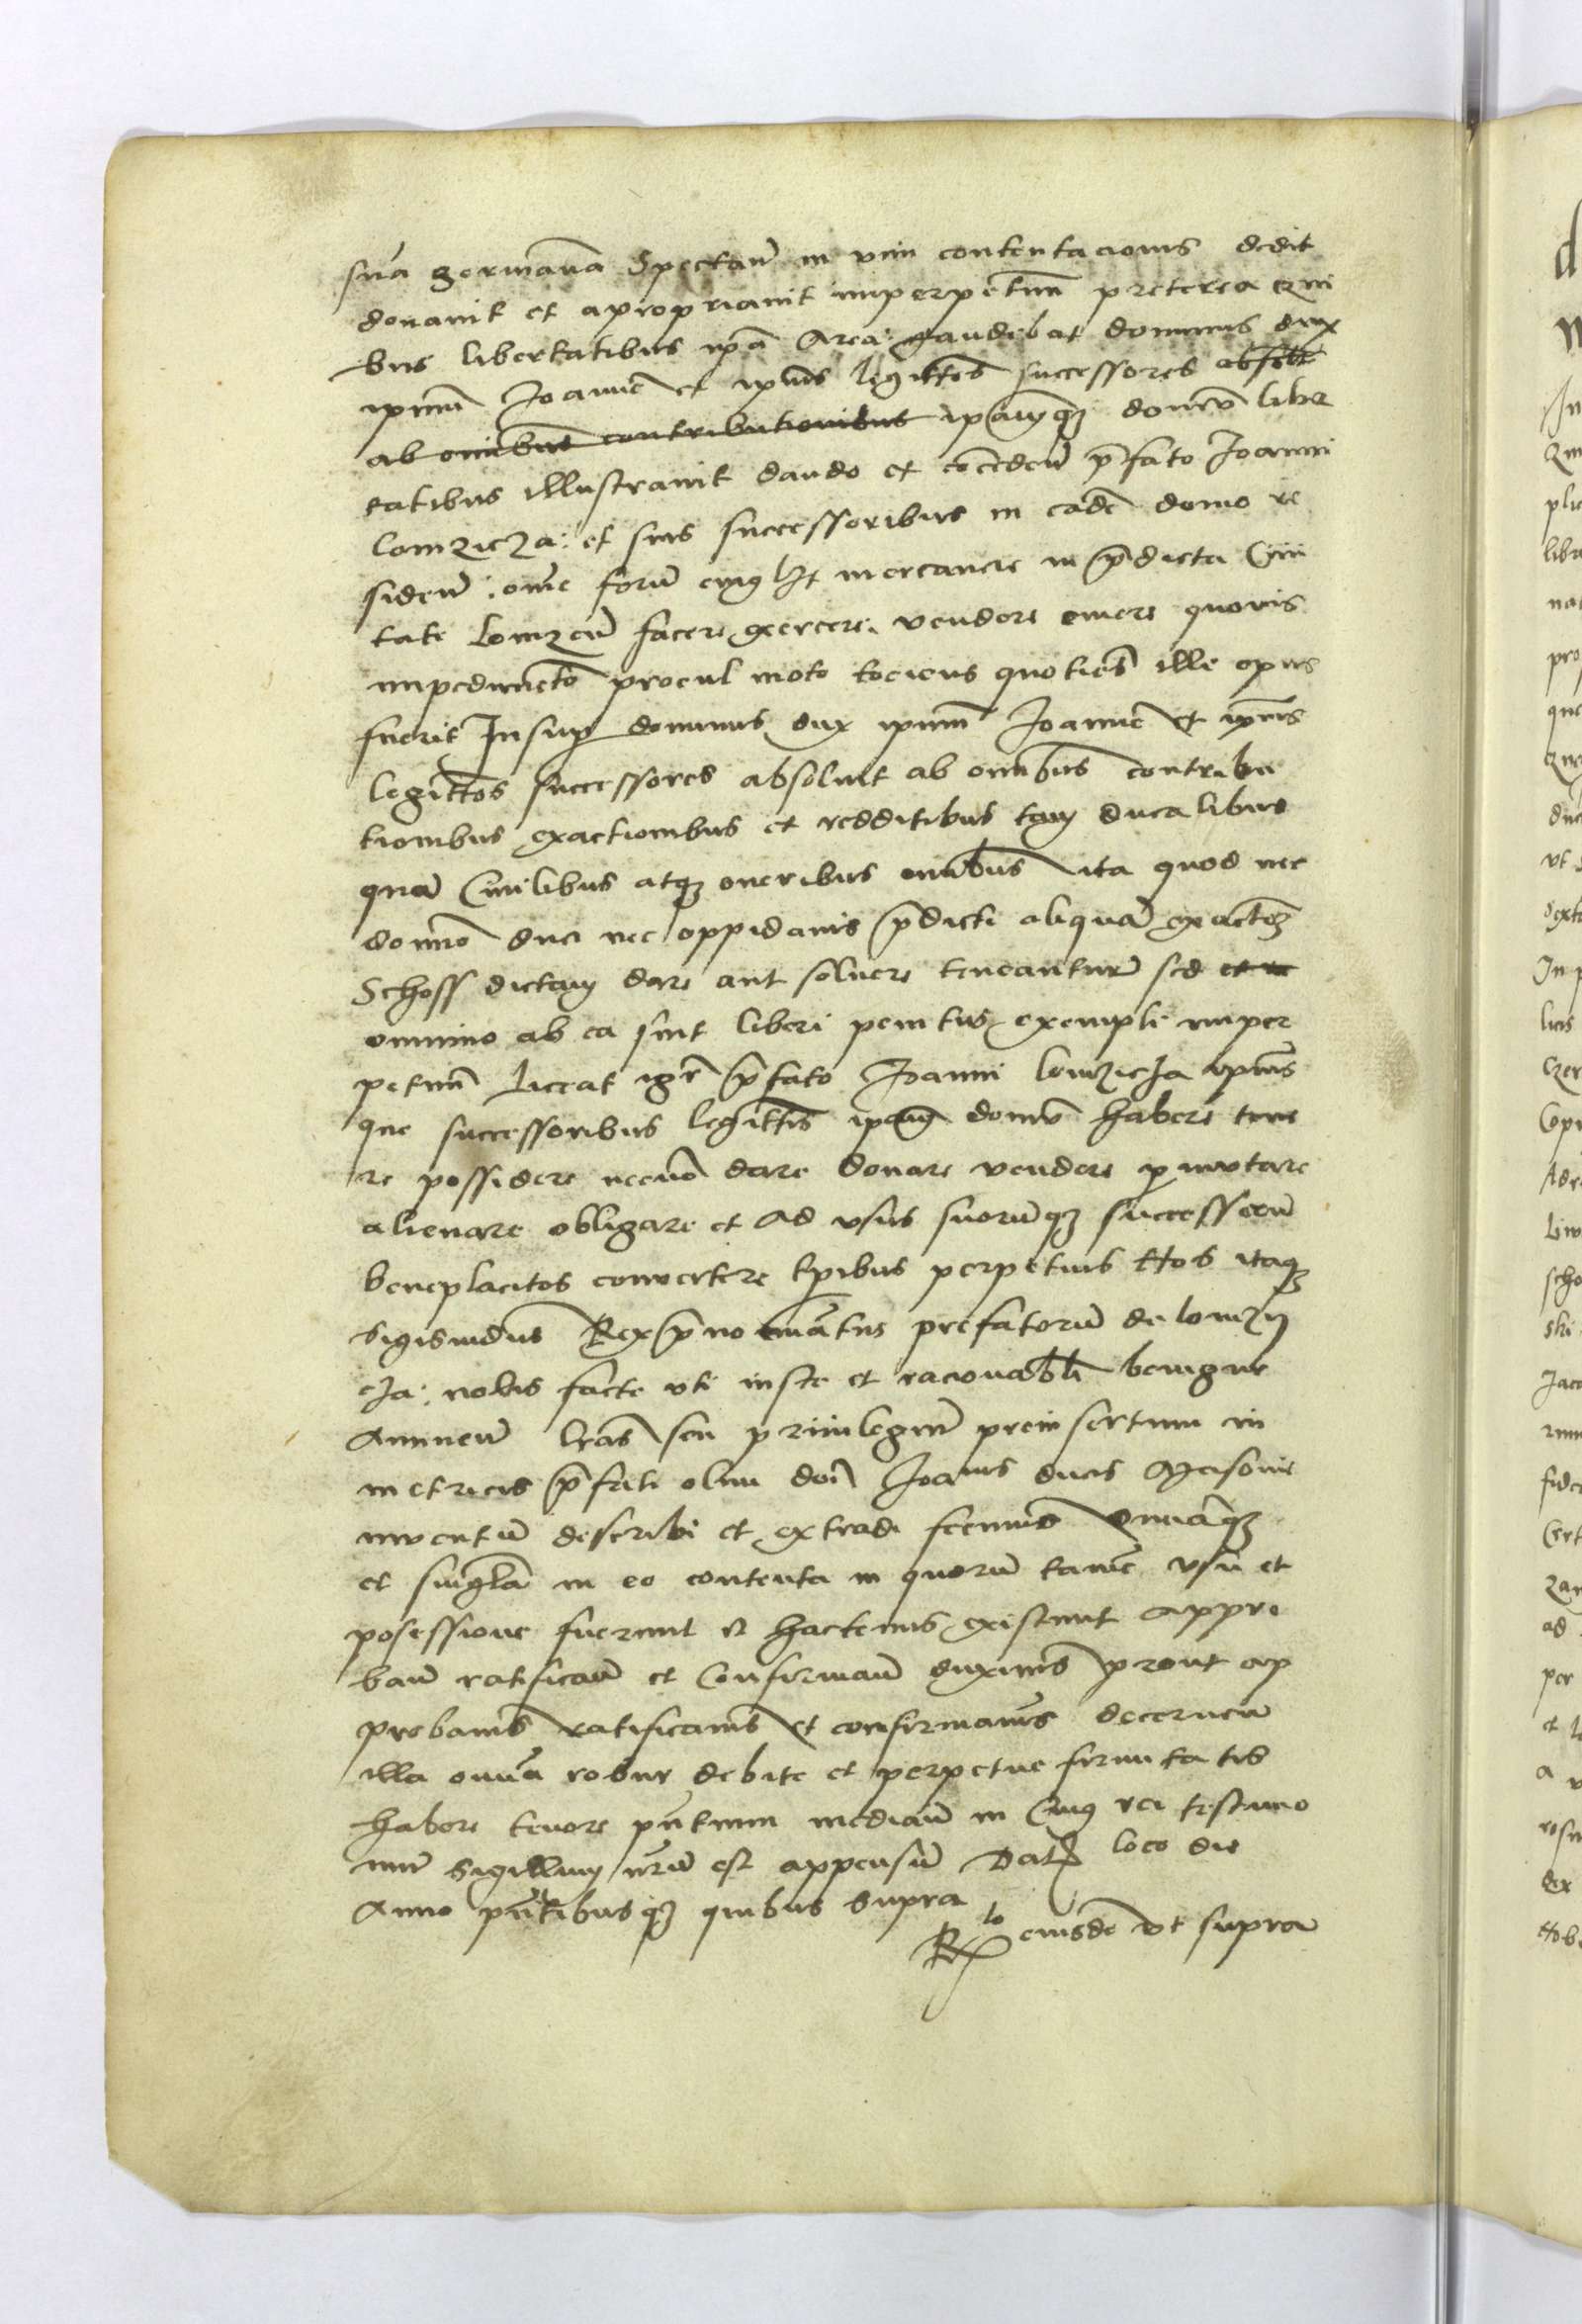 sua germana Spectan in vim contentacionis dedit
donavit et apropriavit imperpetuum preterea qui
bus libertatibus ipa Area gaudebat dominus dux
ipsum Joanne et ipius legittos successores absolt
ab omibus contributionibus ipamqz domu liber
tatibus illustravit dando et coceden pfato Joanni
Lomzicza: et suis successoribus in eade domo re
siden: ome foru cuiuslit mercancie in pdicta Civi
tate Lomzen facere exercere vendere emere quovis
impedimeto procul moto tociens quoties ille opus
fuerit Insup dominus dux ipsum Joanne et ipius
legittos successores absolvit ab omibus contribu
tionibus exactionibus et redditibus tam ducalibus
qua Civilibus atqz oneribus omibus ita quod nec
domino duci nec oppidanis pdicti aliqua exactoez
Schoss dictam dare aut solvere teneantur sed et ne
omnino ab ea sint liberi penitus exempti imper
petuum Liceat igr pfato Joanni Lomzicza ipius
que successoribus legittis ipam domu habere tene
re possidere necno dare donare vendere pmutare
alienare obligare et Ad usus suoruqz successoru
beneplacitos convertere tpibus perpetuis Nos itaqz
Sigismdus Rex pno prefatorum de Lomzy
cza: nobis facte uti iuste et racionabli benigne
Annuen lras seu privilegium preinsertum in
metricis pfati olim doi Joanis ducis Masovie
inventu describi et extradi fecimus Omiaqz
et singla in eo contenta in quoru tame usu et
posessione fuerunt et hactenus existunt appro
ban ratifican et Confirman duximus prout ap
probamus ratificamus et confirmamus decernen
illa omia robur debite et perpetue firmitatis
habere tenore pntium median in Cuius rei testimo
nium Sigillum nrum est appensum Dat loco die
Anno pntibusqz quibus supra
Rlo eiusde ut supra